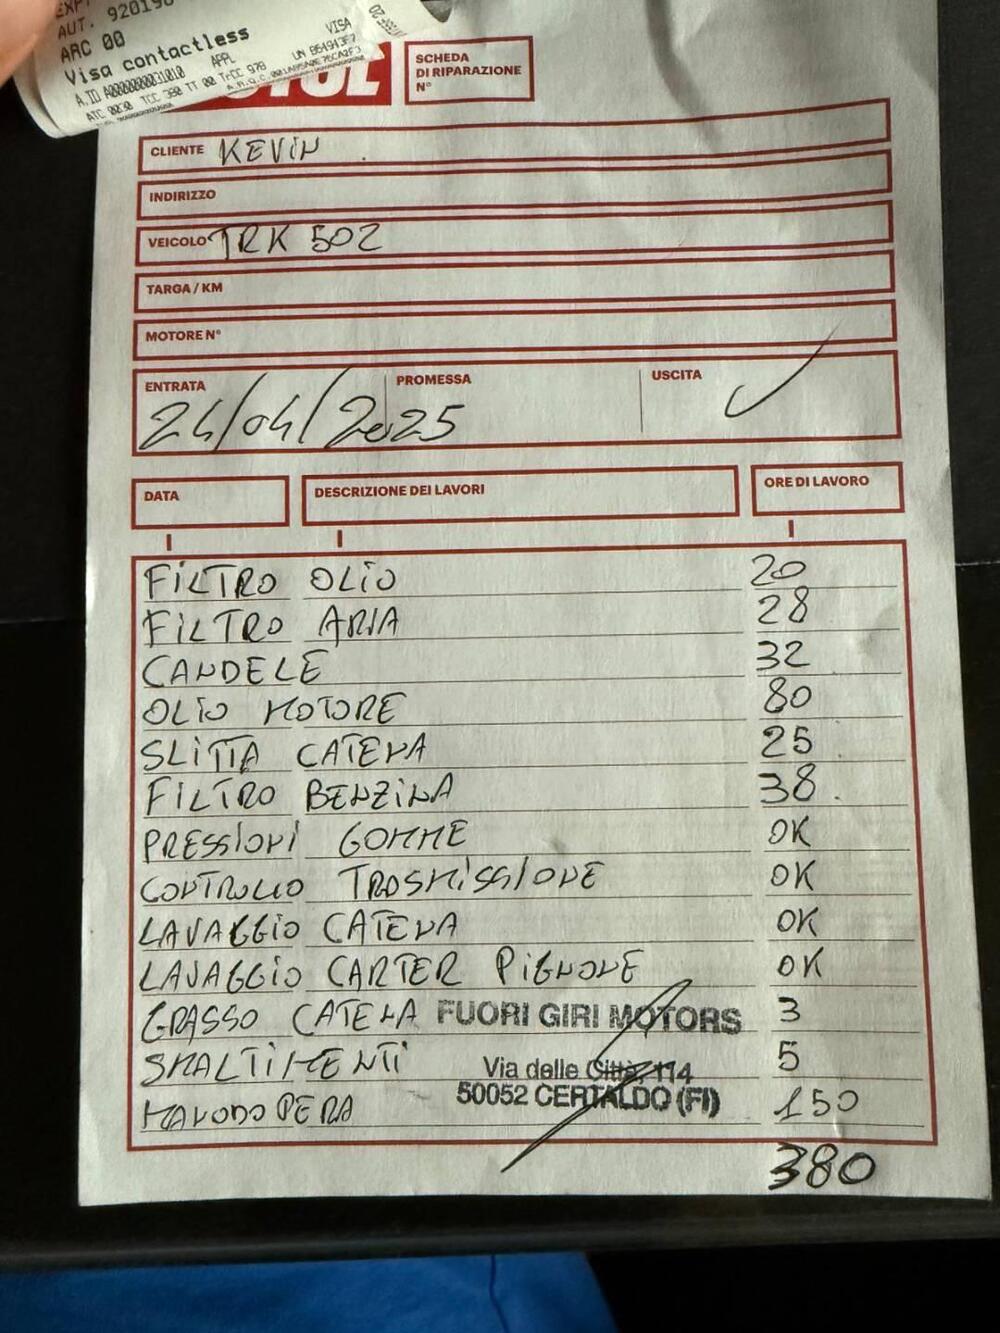 AUT. 920196
ARC 00
Visa contactless
VISA
A.ID A0000000031010 APPL
ATC 0030 TCC 380 TT 00 TrCC 978
SCHEDA
DI RIPARAZIONE
N°
CLIENTE KEVIN
INDIRIZZO
VEICOLO TRK 502
TARGA / KM
MOTORE N°
ENTRATA PROMESSA USCITA
24/04/2025
DATA DESCRIZIONE DEI LAVORI ORE DI LAVORO
FILTRO OLIO 20
FILTRO ARIA 28
CANDELE 32
OLIO MOTORE 80
SLITTA CATENA 25
FILTRO BENZINA 38
PRESSIONI GOMME OK
CONTROLLO TROSMISSIONE OK
LAVAGGIO CATENA OK
LAVAGGIO CARTER PIGNONE OK
GRASSO CATENA FUORI GIRI MOTORS 3
SMALTIMENTI Via delle Città, 114 5
50052 CERTALDO (FI)
MANODOPERA 150
380